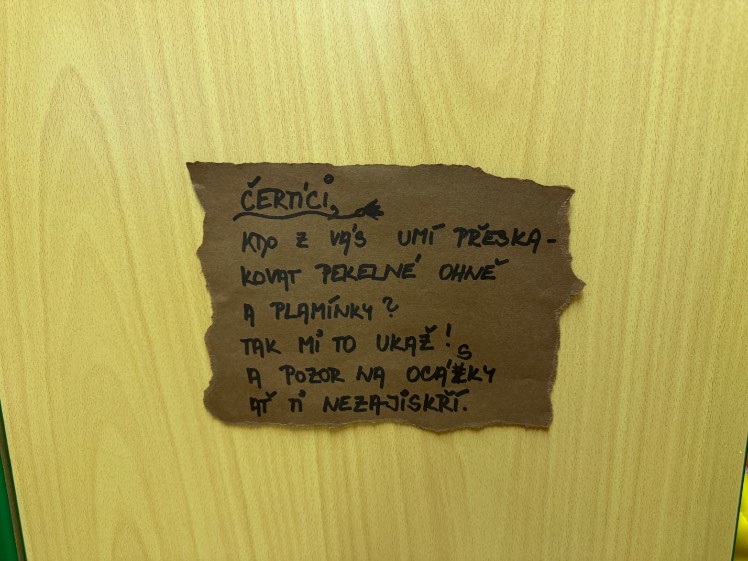 ČERTÍCI,
KDO Z VÁS UMÍ PŘESKA-
KOVAT PEKELNÉ OHNĚ
A PLAMÍNKY?
TAK MI TO UKAŽ!
A POZOR NA OCÁSKY
AŤ TI NEZAJISKŘÍ.